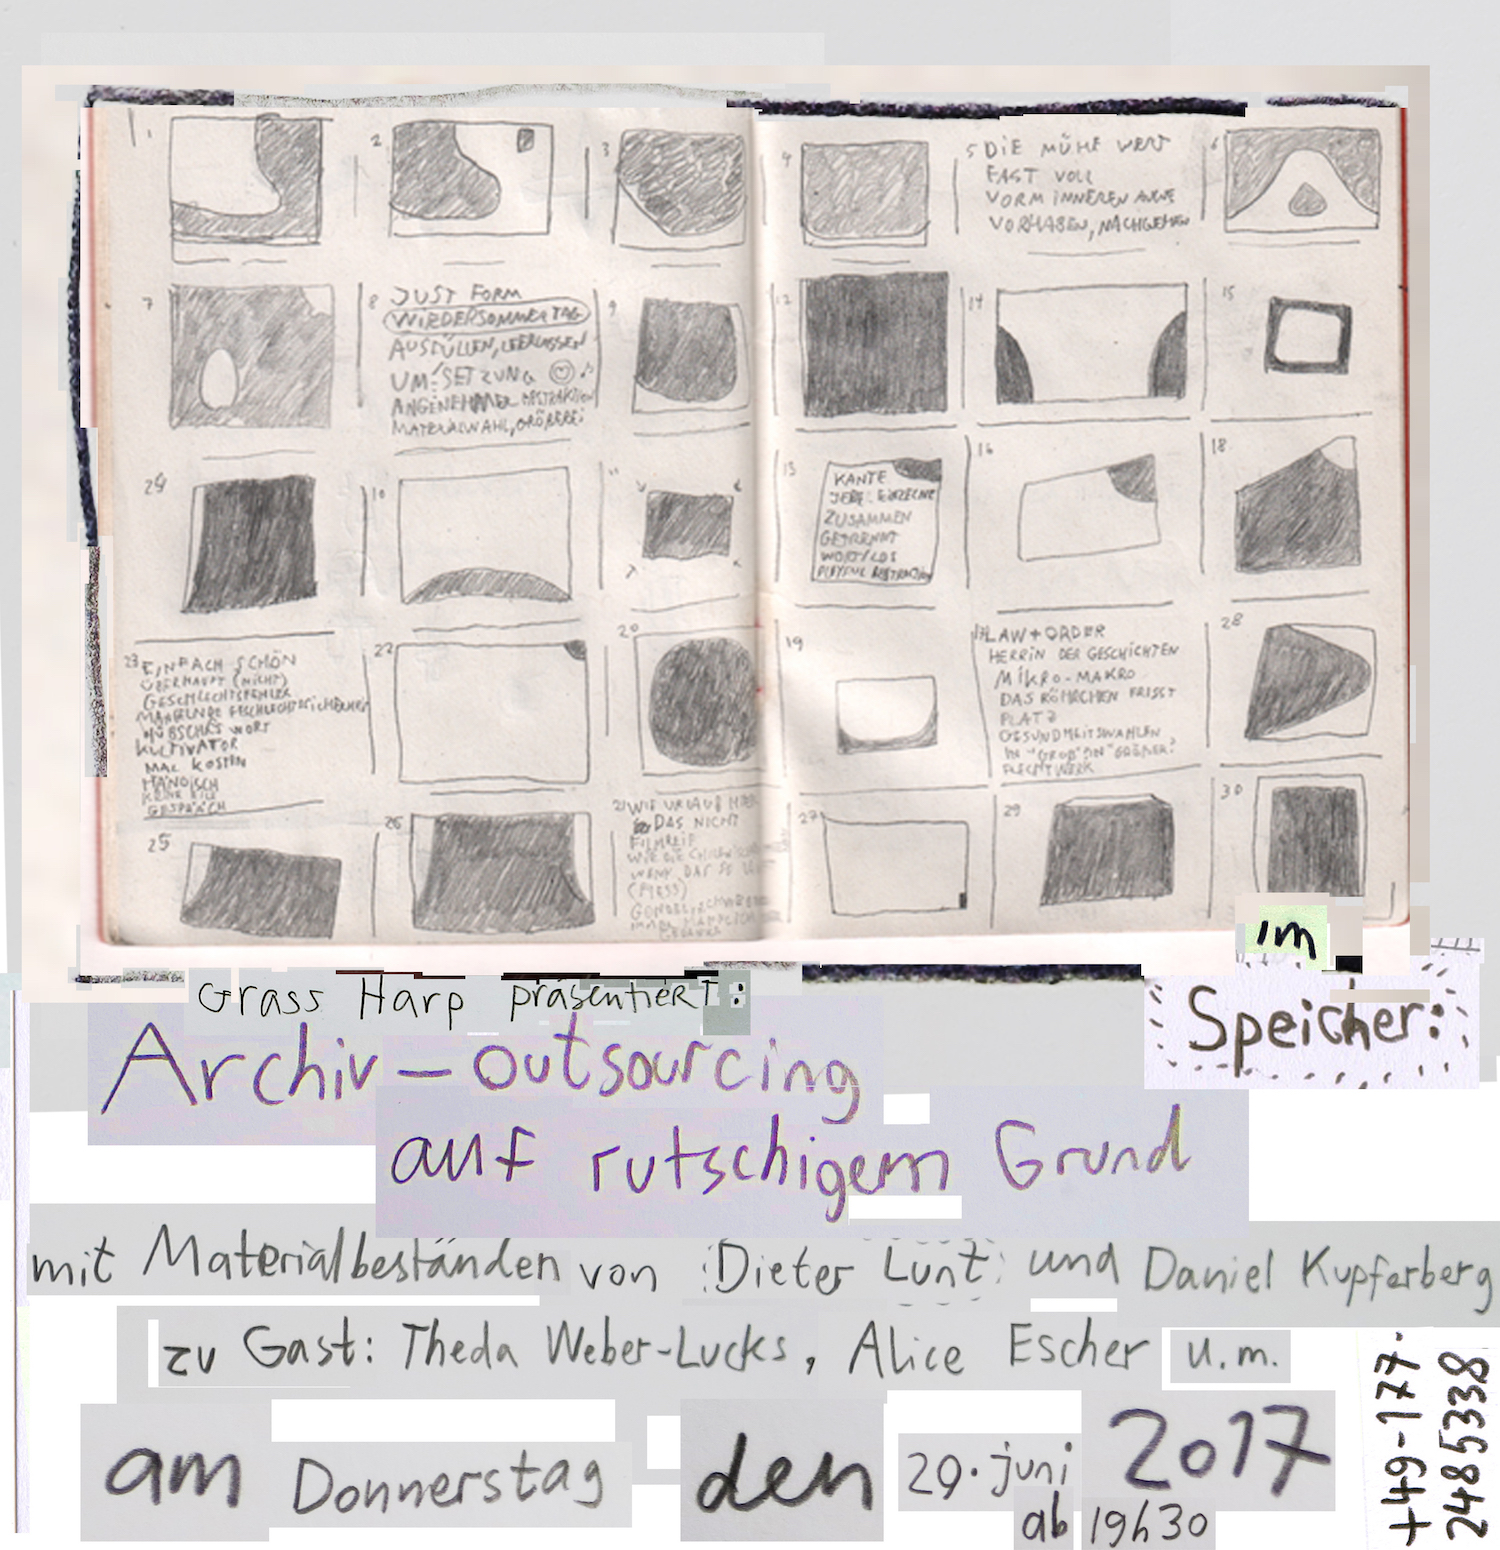 1
2
3
4
5 DIE MÜHE WERT
FAST VOLL
VORM INNEREN AUGE
VORHABEN, NACHGEHEN
6
7
8 JUST FORM
WIEDERSOMMERTAG
AUSFÜLLEN, LEERLASSEN
UM-SETZUNG
ANGENEHME ABSTRAKTION
MATERIALWAHL,
9
12
14
15
24
10
11
13 KANTE
JEDE EINZELNE
ZUSAMMEN
GETRENNT
WORT/LOS
PLAYFUL ABSTRACTION
16
18
23 EINFACH SCHÖN
ÜBERHAUPT (NICHT)
GESCHLECHTSFEHLER
HÜBSCHES WORT
KULTIVATOR
MAL KOSTEN
HÄNDISCH
KEINE EILE
GESPRÄCH
22
20
19
17 LAW + ORDER
HERRIN DER GESCHICHTEN
MIKRO-MAKRO
DAS RÖMRCHEN FRISST
PLATZ
GESUNDHEITSWAHLEN
FLECHTWERK
28
25
26
21 WIE URLAUB HIER
DAS NICHT
FILMREIF
27
29
30
im
Speicher:
Grass Harp präsentiert:
Archiv-outsourcing
auf rutschigem Grund
mit Materialbeständen von Dieter Lunt und Daniel Kupferberg
zu Gast: Theda Weber-Lucks, Alice Escher u.m.
am Donnerstag den 29. juni 2017
ab 19h30
+49-177-
2485338